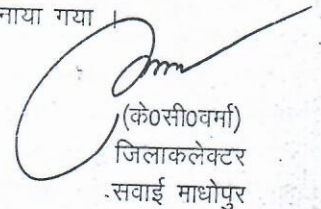 नाया गया ।
(के0सी0वर्मा)
जिलाकलेक्टर
सवाई माधोपुर